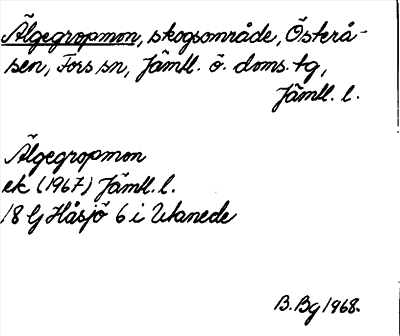 Älgegropmon, skogsområde, Österå-
sen, Fors sn, Jämtl. ö. doms. tg,
Jämtl. l.
Älgegropmon
ek (1967) Jämtl. l.
18 G Håsjö 6 i Utanede
B. Bg 1968.